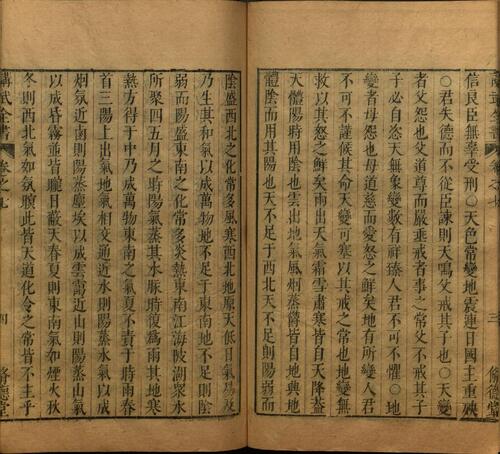 信良臣無辜受刑〇天色常變地震連日國主重殃
〇君失德而不從臣諫則天鳴父戒其子也〇天變
者父怨也父道尊而嚴垂戒者事之常父不戒其子
子必自恣天無象變數有祥臻人君不可不懼〇地
變者母怨也母道慈而愛怒之鮮矣地有所變人君
不可不謹候其命天變可塞以其戒之常也地變無
救以其怒之鮮矣雨出天氣霜雪肅寒皆自天降葢
天體陽時用陰也雲出地氣風烟蒸鬱皆自地興地
體陰而用陽也天不足于西北天不足則陽弱而
陰盛西北之化常多風寒西北地原天低日氣易及
乃生其和氣以成萬物地不足于東南地不足則陰
弱而陽盛東南之化常多炎熱東南江海陂湖衆水
所聚四五月之時陽氣蒸其水脉時復為雨其地寒
熱方得于中乃成萬物東南之氣夏不責于時雨春
首三陽上出氣地氣相交通近水則陽蒸水氣以成
烟氛近南則陽蒸塵埃以成雲靄近山則陽蒸山氣
以成昏霧並皆朧日蔽天春夏則東南氣如煙火秋
冬則西北氣如氛曀此皆天道化令之常皆不主乎
講武全書 卷之七 四 脩德堂